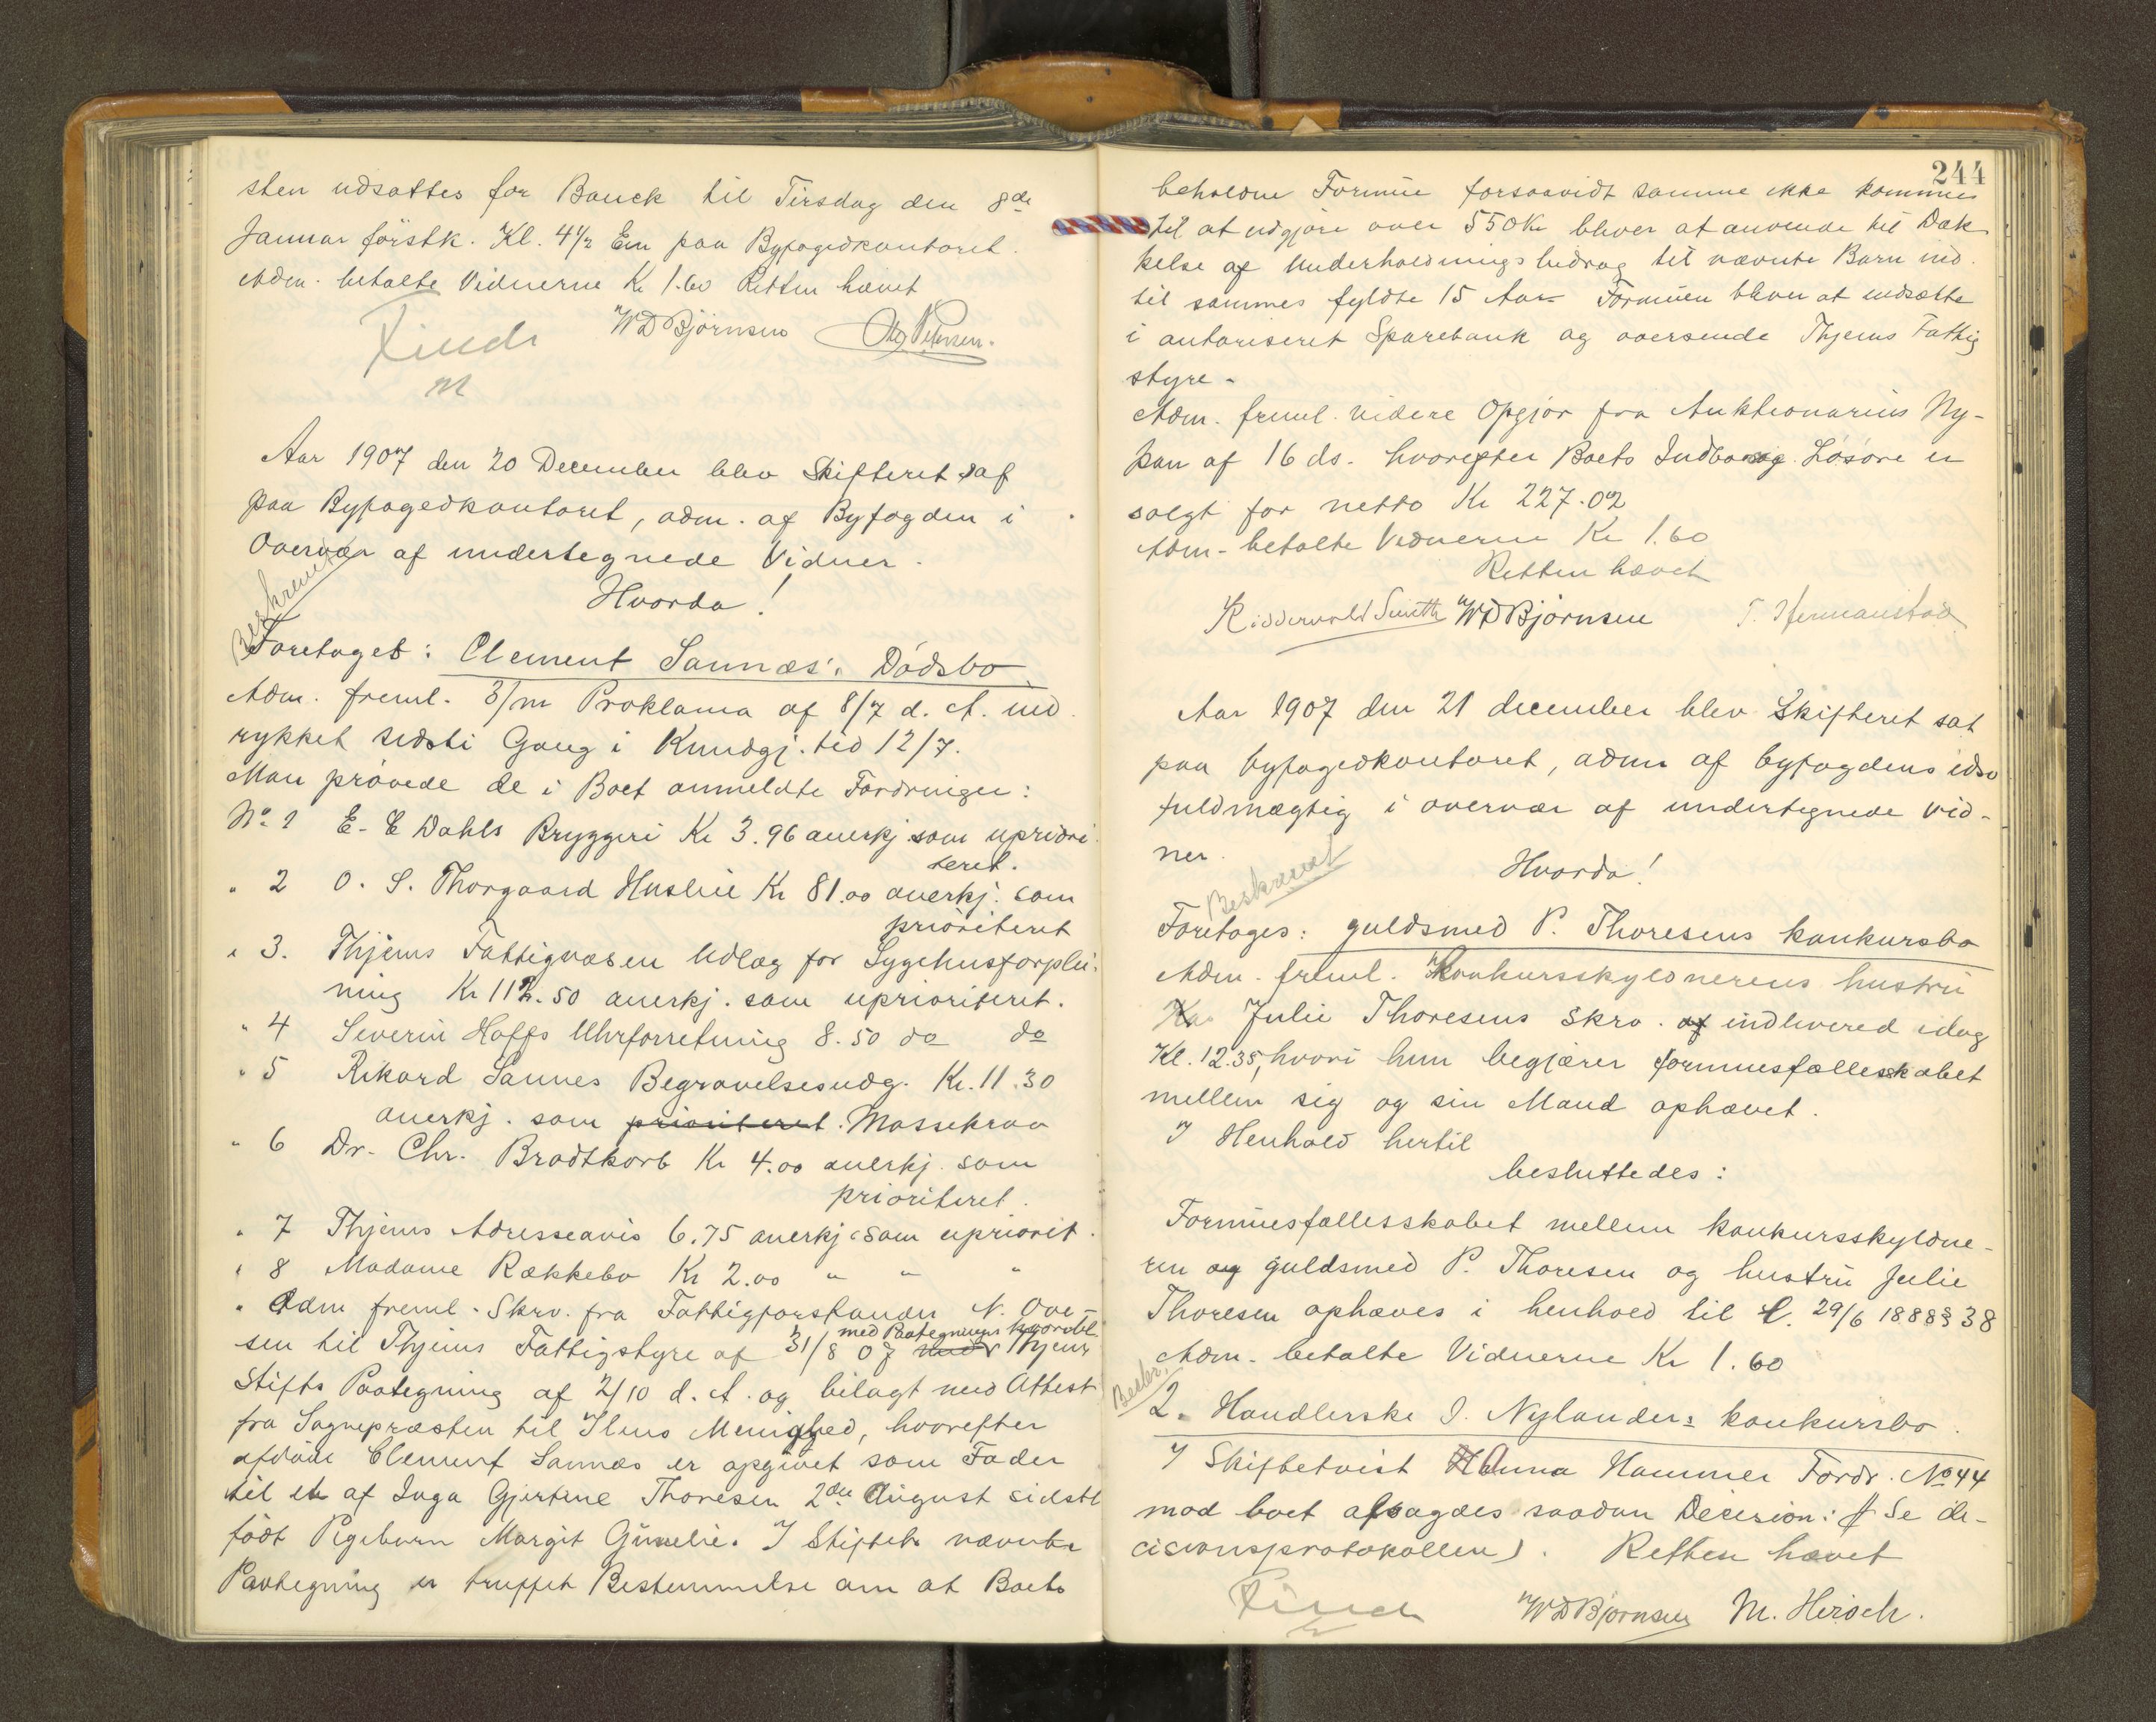 sten udsattes for Bauck til Tirsdag den 8de
Januar förstk. Kl. 4½ Em paa Byfogedkontoret.
Adm. betalte Vidnerne Kr 1.60 Retten hævet
Finch WD Bjørnsen Petersen.
Aar 1907 den 20 December blev Skifteret sat
paa Byfogedkontoret, adm. af Byfogden i
Overvær af undertegnede Vidner.
Hvorda!
Beskrevet
Foretoges: Clement Sannæs': Dödsbo
Adm. freml. 3/m Proklama af 8/7 d. A. ind
rykket sidste Gang i Kundgj. tid 12/7.
Man prövede de i Boet anmeldte Fordringer:
No. 1 E. C Dahls Bryggeri Kr 3.96 anerkj som upriori
teret.
" 2 O. S. Thorgaard Husleie Kr 81.00 anerkj. som
prioriteret
" 3. Thjems Fattigvæsen Udlæg for Sygehusforplei-
ning Kr 112.50 anerkj. som uprioriteret.
" 4 Severin Hoffs Uhrforretning 8.50 do do
" 5 Rikard Sannes Begravelsesudg. Kr. 11.30
anerkj. som prioriteret. Massekrav
" 6 Dr. Chr. Bradtkorb Kr 4.00 anerkj. som
prioriteret.
" 7 Thjems Adresseavis 6.75 anerkj som upriorit.
" 8 Madame Rækkebo Kr 2.00 " " "
" Adm freml. Skrv. fra Fattigforstander N. Ove-
med Paategnings
sen til Thjems Fattigstyre af 31/8 07 Thjems
Stifts Paategning af 2/10 d. A. og bilagt med Attest
fra Sognepræsten til Ilens Menighed, hvorefter
afdöde Clement Sannæs er opgivet som Fader
til et af Inga Gjertine Thoresen 2den August sidstl
födt Pigebarn Margit Gunelie. I Stiftets nævnte
Paategning er truffet Bestemmelse om at Boets
244
beholdne Formue forsaavidt samme ikke kommer
til at udgjøre over 550 Kr bliver at anvende til Dæk
kelse af Underholdningsbidrag til nævnte Barn ind
til sammes fyldte 15 Aar Formuen bliver at indsætte
i autoriseret Sparebank og oversende Thjems Fattig
styre.
Adm. freml. videre Opgjør fra Auktionarius Ny-
pan af 16 ds. hvorefter Boets Indbo og Løsøre er
solgt for netto Kr 227.02
Adm. betalte Vidnerne Kr 1.60
Retten hævet
Riddervold Smith WD Bjørnsen T. Hermanstad
Aar 1907 den 21 december blev Skifteret sat
paa byfogedkontoret, adm af byfogdens edsv
fuldmægtig i overvær af undertegnede vid-
ner.
Hvorda!
Beskrevet
Foretoges: guldsmed P. Thoresens konkursbo
Adm. freml. Konkursskyldnerens hustru
Julie Thoresens Skrv. af indlevered idag
Kl. 12.35, hvori hun begjærer formuesfællesskabet
mellem sig og sin Mand ophævet.
I Henhold hertil
besluttedes:
Formuesfællesskabet mellem konkursskyldne-
ren og guldsmed P. Thoresen og hustru Julie
Thoresen ophæves i henhold til L. 29/6 1888 § 38
Adm. betalte Vidnerne Kr 1.60
Beskr.
2. Handlerske J. Nylanders konkursbo.
I Skiftetvist Anna Hammer Fordr. No 44
mod boet afsagdes saadan Decision: (Se de-
cisionsprotokollen). Retten hævet
Finch WD Bjørnsen M. Hirsch.